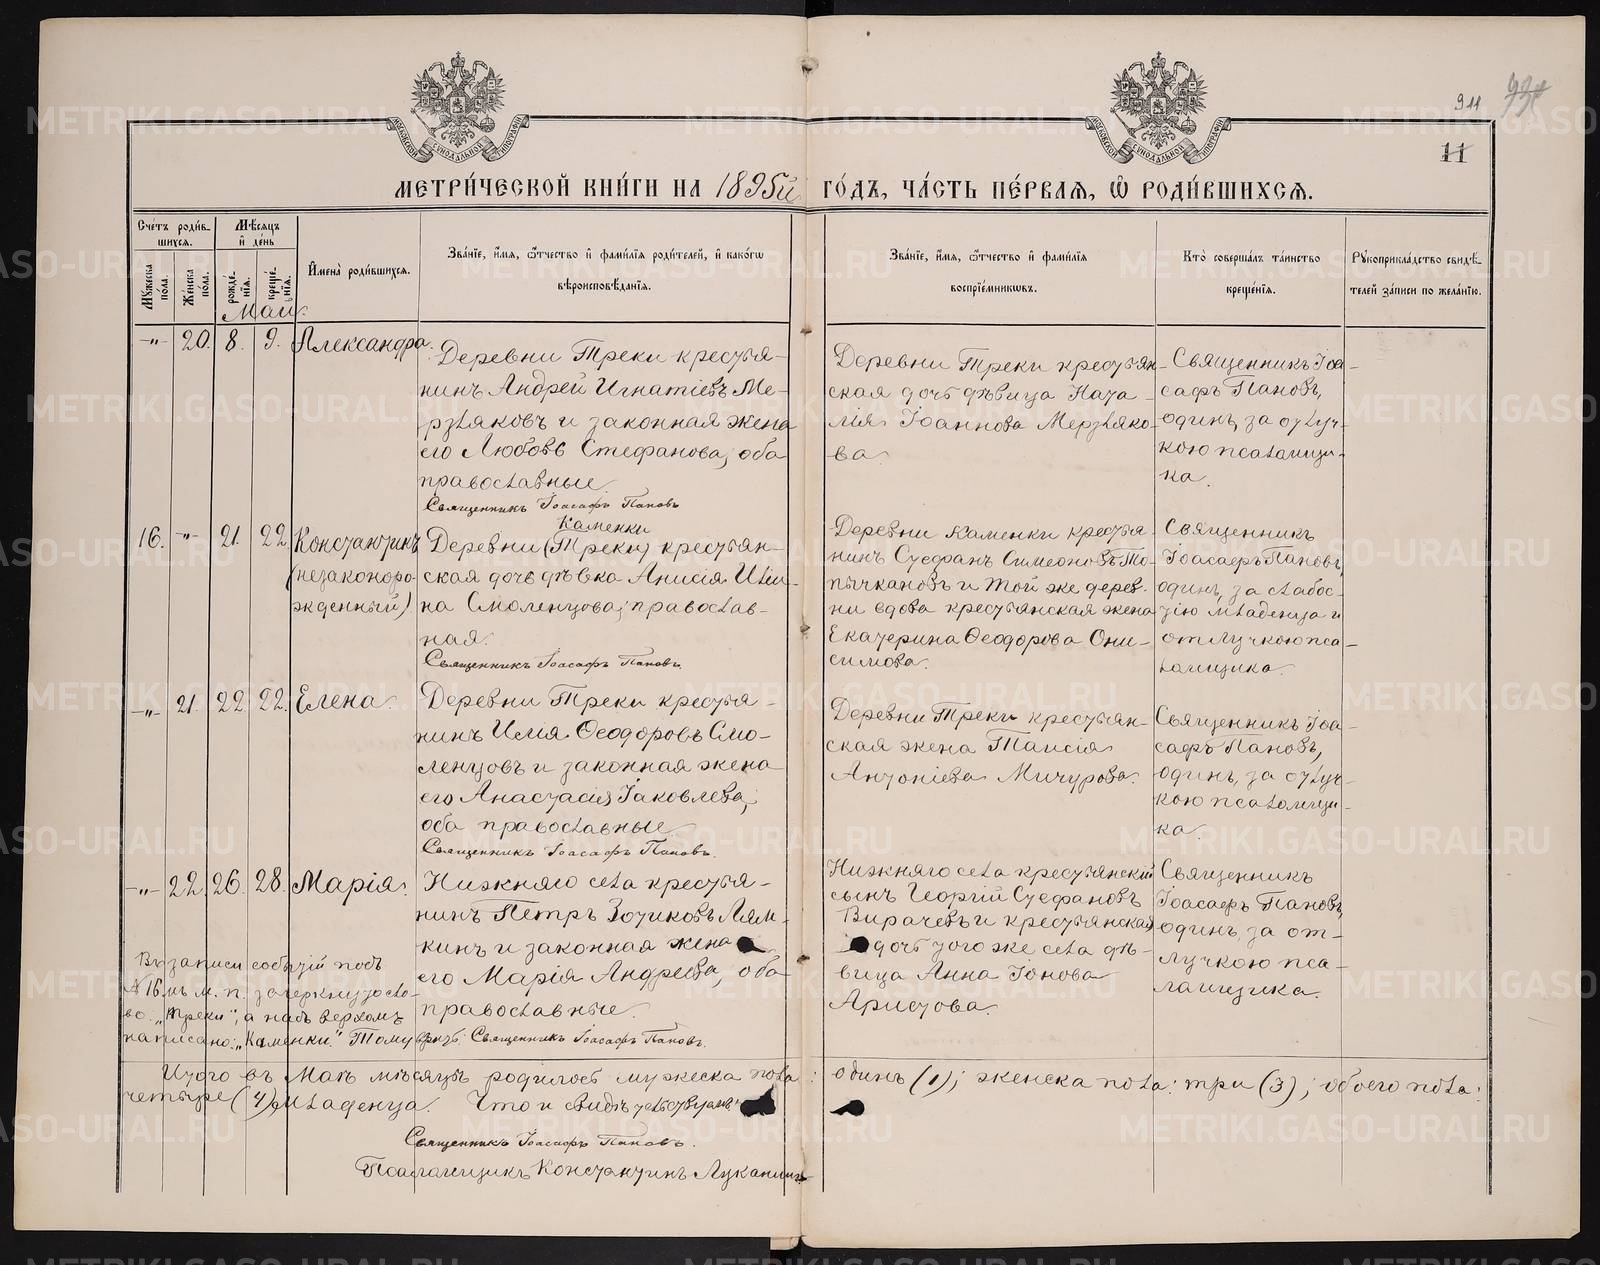 911
11
МОСКОВСКОЙ СѴНОДАЛЬНОЙ ТИПОГРАФІИ
МОСКОВСКОЙ СѴНОДАЛЬНОЙ ТИПОГРАФІИ
МЕТРИ́ЧЕСКОЙ КНИ́ГИ НА 1895й ГО́ДЪ, ЧА́СТЬ ПЕ́РВАЯ, Ѡ҆ РОДИ́ВШИХСЯ.
Сче́тъ роди́вшихся.
Мꙋ́жеска по́ла.
Же́нска по́ла.
Мѣ́сяцъ и҆ де́нь
рожде́нїя.
креще́нїя.
И҆мена̀ роди́вшихся.
Зва́нїе, и҆́мя, ѻ҆́тчество и҆ фами́лїя роди́телей, и҆ како́гѡ
вѣроисповѣ́данїя.
Зва́нїе, и҆́мя, ѻ҆́тчество и҆ фами́лїя
воспрїе́мникѡвъ.
Кто̀ соверша́лъ та́инство
креще́нїя.
Рꙋкоприкла́дство свидѣ́-
телей за́писи по жела́нїю.
Маи.
-"- 20. 8. 9. Александра.
Деревни Треки крестья-
нинъ Андрей Игнатіевъ Ме-
рзляковъ и законная жена
его Любовь Стефанова, оба
православные.
Священникъ Іоасафъ Пановъ
Деревни Треки крестьян-
ская дочь дѣвица Ната-
лія Іоаннова Мерзляко-
ва.
Священникъ Іоа-
сафъ Пановъ,
одинъ, за отлуч-
кою псаломщи-
ка.
16. -"- 21. 22. Константинъ
(незаконоро-
жденный)
Каменки
Деревни (Треки) крестьян-
ская дочь дѣвка Анисія Иліи-
на Смоленцова; православ-
ная.
Священникъ Іоасафъ Пановъ.
Деревни Каменки крестья-
нинъ Стефанъ Симеоновъ То-
пычкановъ и той же дерев-
ни вдова крестьянская жена
Екатерина Ѳеодорова Они-
симова.
Священникъ
Іоасафъ Пановъ,
одинъ, за слабос-
тію младенца и
отлучкою пса-
ломщика.
-"- 21. 22. 22. Елена.
Деревни Треки крестья-
нинъ Илія Ѳеодоровъ Смо-
ленцовъ и законная жена
его Анастасія Іаковлева,
оба православные
Священникъ Іоасафъ Пановъ.
Деревни Треки крестьян-
ская жена Таисія
Антоніева Мичурова.
Священникъ Іоа-
сафъ Пановъ,
одинъ, за отлуч-
кою псаломщи-
ка.
-"- 22. 26. 28. Марія.
Нижняго села крестья-
нинъ Петръ Зотиковъ Лям-
кинъ и законная жена
его Марія Андреева, оба
православные.
Священникъ Іоасафъ Пановъ.
Нижняго села крестьянскій
сынъ Георгій Стефановъ
Вирачевъ и крестьянская
дочь того же села дѣ-
вица Анна Іонова
Аристова.
Священникъ
Іоасафъ Пановъ,
одинъ, за от-
лучкою пса-
ломщика.
Въ записи событій подъ
№ 16мъ м. п. зачеркнуто сло-
во: „Треки", а надъ верхомъ
написано: „Каменки." Тому вѣрить:
Итого въ Маѣ мѣсяцѣ родилось мужеска пола: одинъ (1); женска пола: три (3); обоего пола:
четыре (4) младенца. Что и свидѣтельствуемъ:
Священникъ Іоасафъ Пановъ.
Псаломщикъ Константинъ Луканинъ.
METRIKI.GASO-URAL.RU